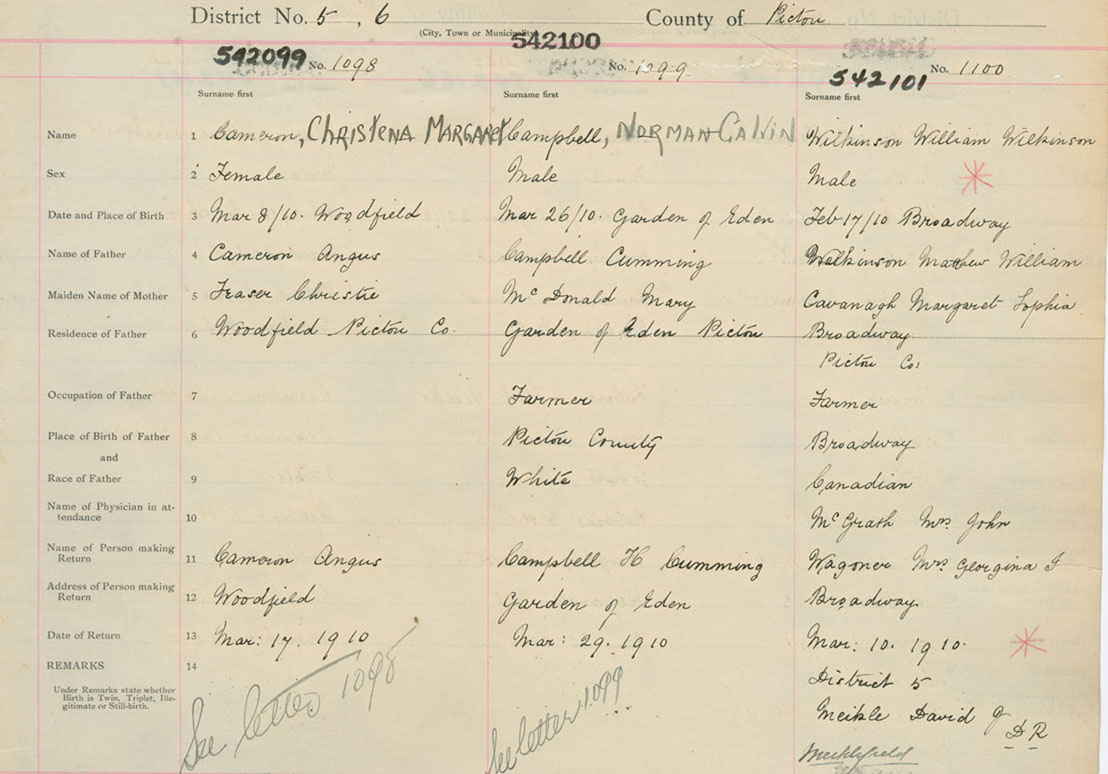 District No. 5, 6 County of Pictou
(City, Town or Municipality)
542099 No. 1098 542100 No. 1099 542101 No. 1100
Surname first Surname first Surname first
Name 1 Cameron, CHRISTENA MARGARET Campbell, NORMAN CALVIN Wilkinson William Wilkinson
Sex 2 Female Male Male
Date and Place of Birth 3 Mar 8/10. Woodfield Mar 26/10. Garden of Eden Feb 17/10 Broadway
Name of Father 4 Cameron Angus Campbell Cumming Wilkinson Matthew William
Maiden Name of Mother 5 Fraser Christie Mc Donald Mary Cavanagh Margaret Sophia
Residence of Father 6 Woodfield Pictou Co. Garden of Eden Pictou Broadway
Pictou Co:
Occupation of Father 7 Farmer Farmer
Place of Birth of Father 8 Pictou County Broadway
and
Race of Father 9 White Canadian
Name of Physician in at-
tendance 10 McGrath Mrs. John
Name of Person making
Return 11 Cameron Angus Campbell H Cumming Wagoner Mrs. Georgina J
Address of Person making
Return 12 Woodfield Garden of Eden Broadway
Date of Return 13 Mar: 17. 1910 Mar: 29. 1910 Mar: 10. 1910.
REMARKS 14 District 5
Under Remarks state whether
Birth is Twin, Triplet, Ille-
gitimate or Still-birth.
See letter 1098 See letter 1099 Meikle David J DR